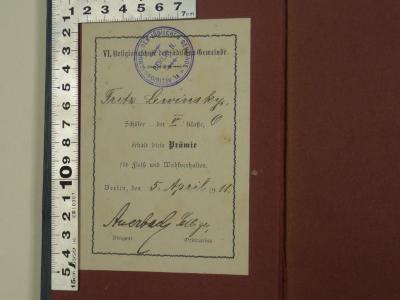 VI. Religionsschule der jüdischen Gemeinde
Fritz Lewinsky,
Schüler der V Klasse, O
erhält diese Prämie
für Fleiß und Wohlverhalten.
Berlin, den 5. April 1911.
Auerbach
Dirigent Ordinarius